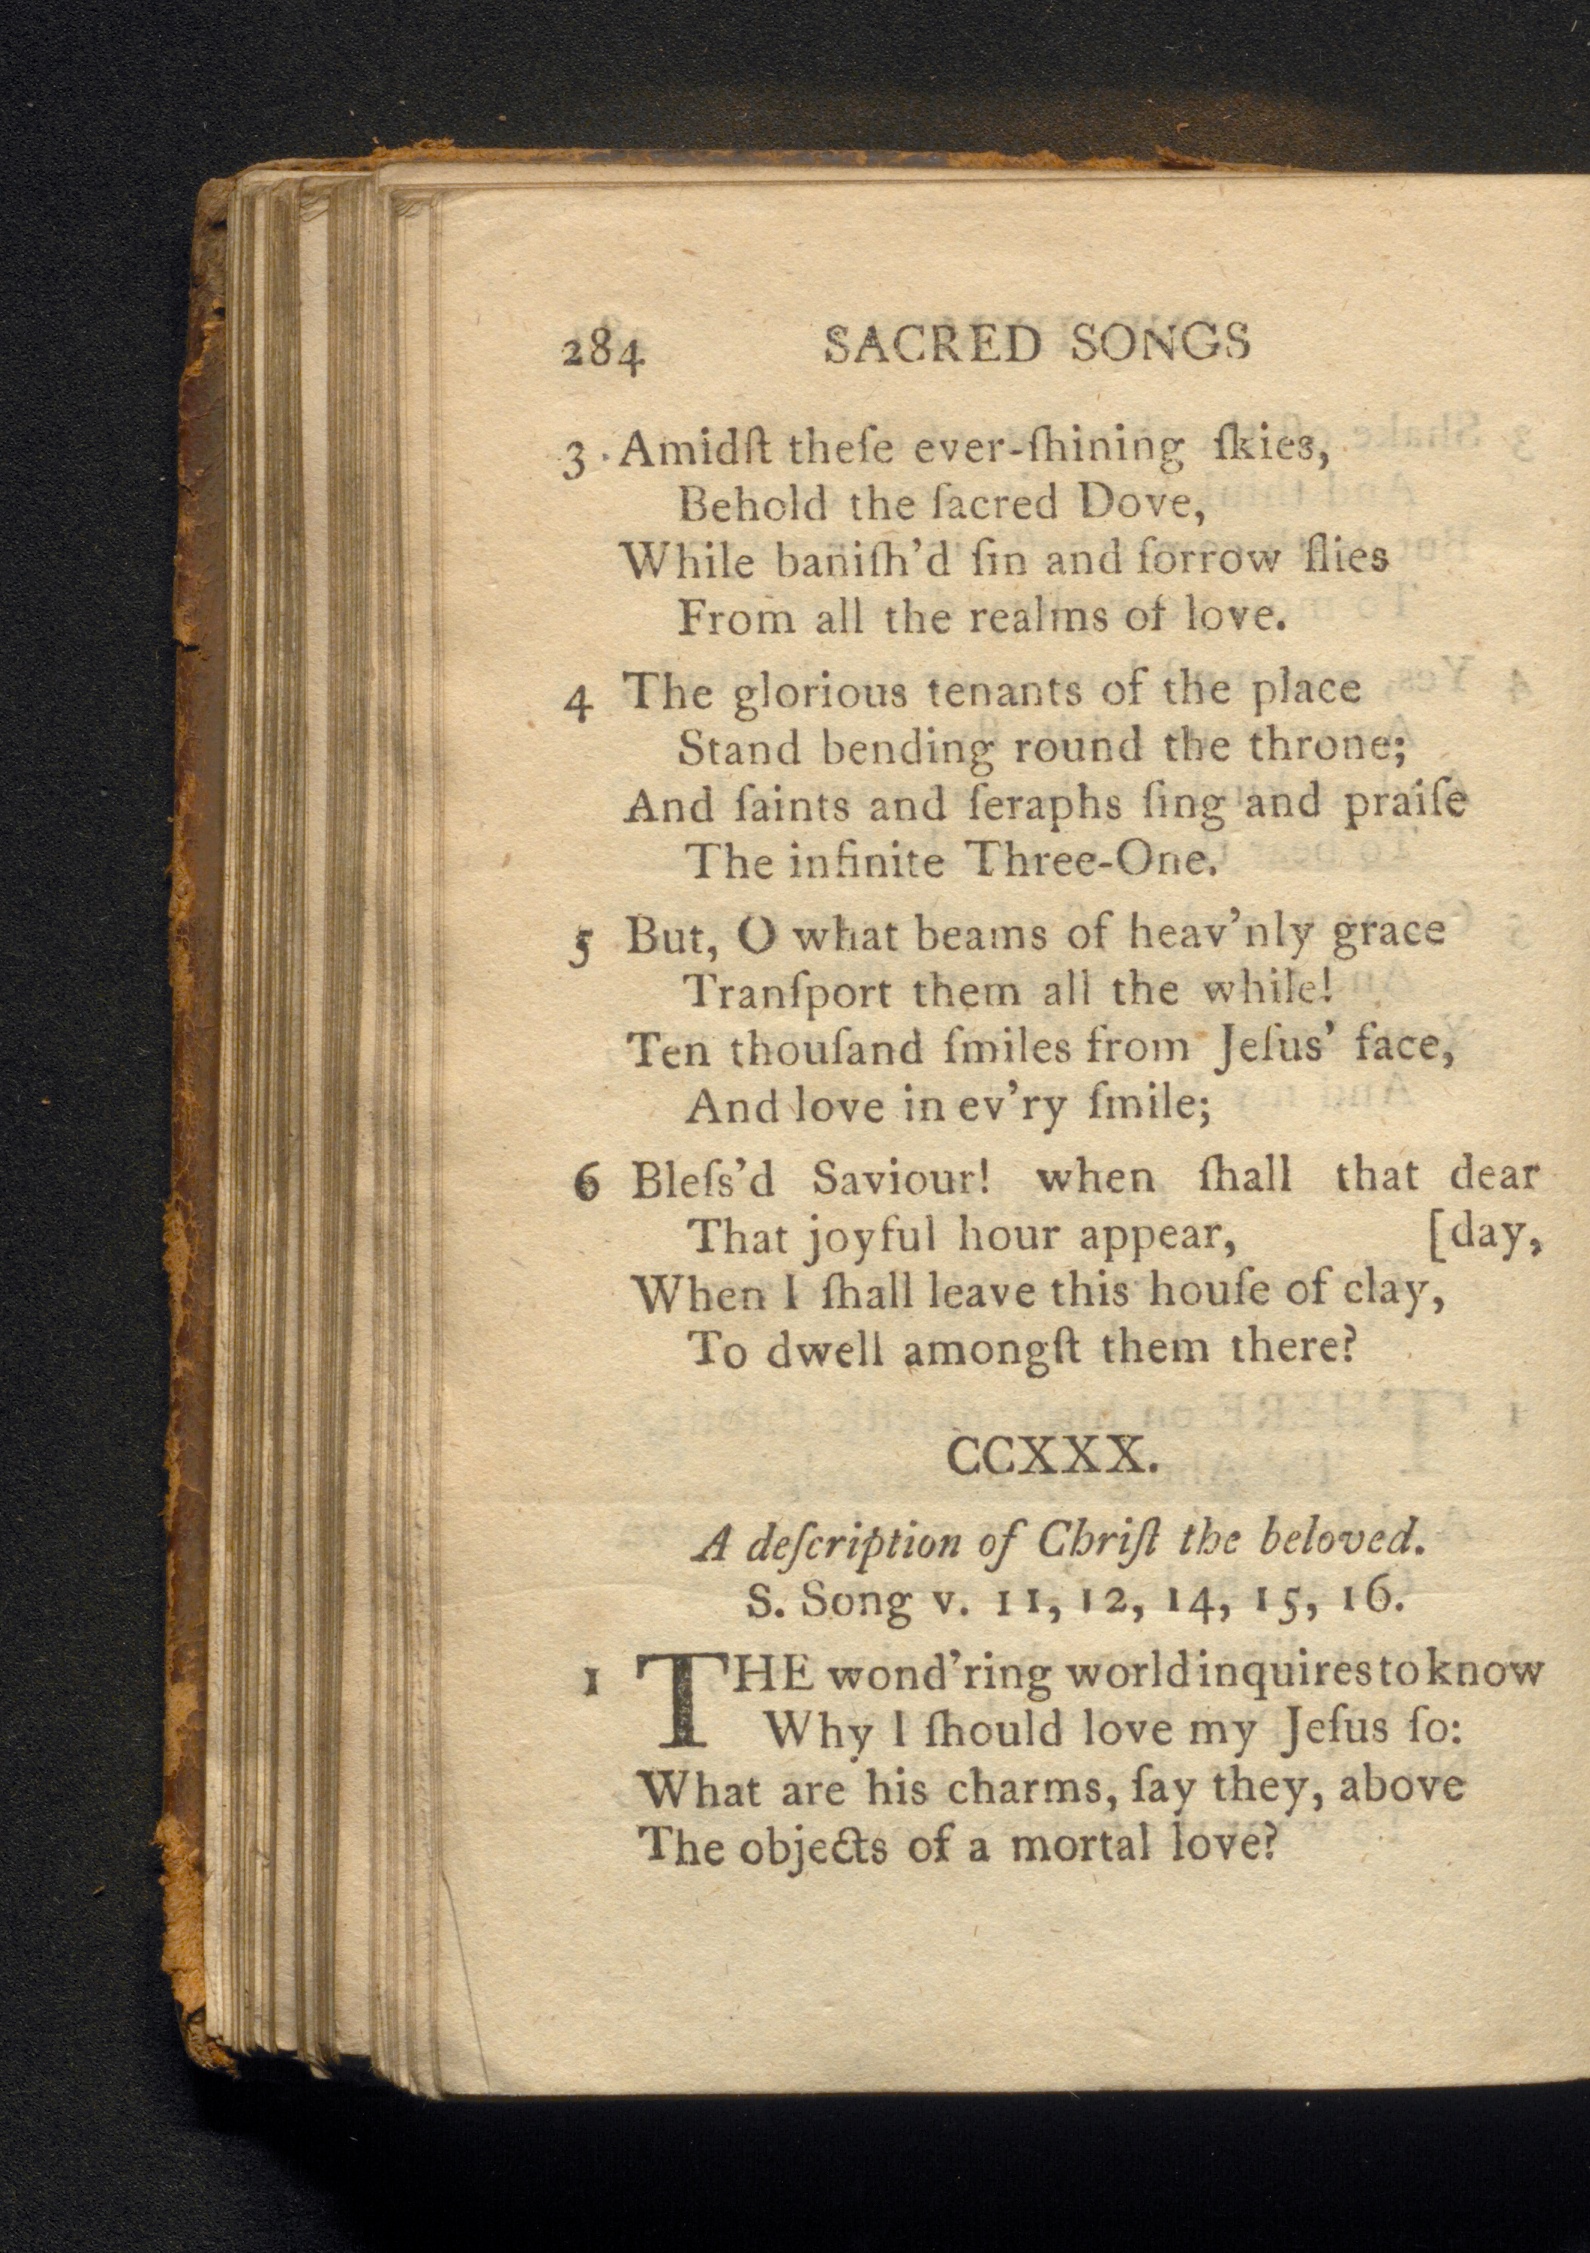 284 SACRED SONGS
3 Amidſt theſe ever-ſhining ſkies,
Behold the ſacred Dove,
While baniſh’d ſin and ſorrow flies
From all the realms of love.
4 The glorious tenants of the place
Stand bending round the throne;
And ſaints and ſeraphs ſing and praiſe
The infinite Three-One.
5 But, O what beams of heav’nly grace
Tranſport them all the while!
Ten thouſand ſmiles from Jeſus’ face,
And love in ev’ry ſmile;
6 Bleſs’d Saviour! when ſhall that dear
That joyful hour appear, [day,
When I ſhall leave this houſe of clay,
To dwell amongſt them there?
CCXXX.
A deſcription of Chriſt the beloved.
S. Song v. 11, 12, 14, 15, 16.
1 THE wond’ring world inquires to know
Why I ſhould love my Jeſus ſo:
What are his charms, ſay they, above
The objects of a mortal love?